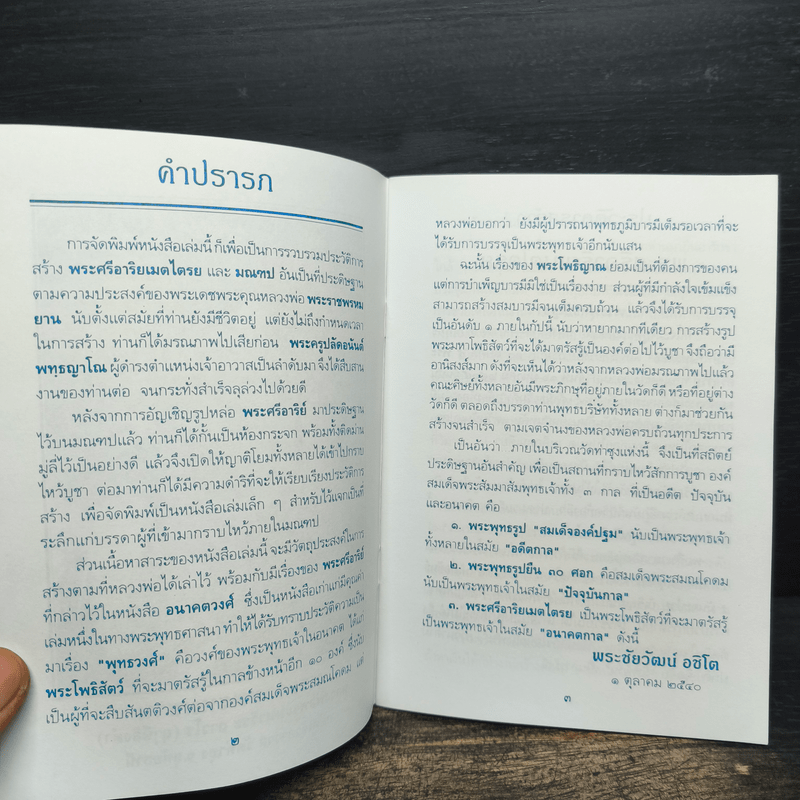 คำปรารภ
การจัดพิมพ์หนังสือเล่มนี้ ก็เพื่อเป็นการรวบรวมประวัติการ
สร้าง พระศรีอาริยเมตไตรย และ มณฑป อันเป็นที่ประดิษฐาน
ตามความประสงค์ของพระเดชพระคุณหลวงพ่อ พระราชพรหม
ยาน นับตั้งแต่สมัยที่ท่านยังมีชีวิตอยู่ แต่ยังไม่ถึงกำหนดเวลา
ในการสร้าง ท่านก็ได้มรณภาพไปเสียก่อน พระครูปลัดอนันต์
พทฺธญาโณ ผู้ดำรงตำแหน่งเจ้าอาวาสเป็นลำดับมา จึงได้สืบสน
งานของท่านต่อ จนกระทั่งสำเร็จลุล่วงไปด้วยดี
หลังจากการอัญเชิญรูปหล่อ พระศรีอาริย์ มาประดิษฐาน
ไว้บนมณฑปแล้ว ท่านก็ได้กั้นเป็นห้องกระจก พร้อมทั้งติดม่าน
มู่ลี่ไว้เป็นอย่างดี แล้วจึงเปิดให้ญาติโยมทั้งหลายได้เข้าไปกราบ
ไหว้บูชา ต่อมาท่านก็ได้มีความดำริที่จะให้เรียบเรียงประวัติการ
สร้าง เพื่อจัดพิมพ์เป็นหนังสือเล่มเล็ก ๆ สำหรับไว้แจกเป็นที่
ระลึกแก่บรรดาผู้ที่เข้ามากราบไหว้ภายในมณฑป
ส่วนเนื้อหาสาระของหนังสือเล่มนี้ จะมีวัตถุประสงค์ในการ
สร้างตามที่หลวงพ่อได้เล่าไว้ พร้อมกับมีเรื่องของ พระศรีอาริย์
ที่กล่าวไว้ในหนังสือ อนาคตวงศ์ ซึ่งเป็นหนังสือเก่าแก่มีคุณค่า
เล่มหนึ่งในทางพระพุทธศาสนา ทำให้ได้ทราบประวัติความเป็น
มาเรื่อง "พุทธวงศ์" คือวงศ์ของพระพุทธเจ้าในอนาคต ได้แก่
พระโพธิสัตว์ ที่จะมาตรัสรู้ในกาลข้างหน้าอีก ๑๐ องค์ ซึ่งนับ
เป็นผู้ที่จะสืบสันตติวงศ์ต่อจากองค์สมเด็จพระสมณโคดม แต่
๒
หลวงพ่อบอกว่า ยังมีผู้ปรารถนาพุทธภูมิบารมีเต็มรอเวลาที่จะ
ได้รับการบรรจุเป็นพระพุทธเจ้าอีกนับแสน
ฉะนั้น เรื่องของ พระโพธิญาณ ย่อมเป็นที่ต้องการของคน
แต่การบำเพ็ญบารมีมิใช่เป็นเรื่องง่าย ส่วนผู้ที่มีกำลังใจเข้มแข็ง
สามารถสร้างสมบารมีจนเต็มครบถ้วน แล้วจึงได้รับการบรรจุ
เป็นอันดับ ๑ ภายในกัปนี้ นับว่าหายากมากทีเดียว การสร้างรูป
พระมหาโพธิสัตว์ที่จะได้มาตรัสรู้เป็นองค์ต่อไปไว้บูชา จึงถือว่ามี
อานิสงส์มาก ดังที่จะเห็นได้ว่าหลังจากหลวงพ่อมรณภาพไปแล้ว
คณะศิษย์ทั้งหลายอันมีพระภิกษุที่อยู่ภายในวัดก็ดี หรือที่อยู่ต่าง
วัดก็ดี ตลอดถึงบรรดาท่านพุทธบริษัททั้งหลาย ต่างก็มาช่วยกัน
สร้างจนสำเร็จ ตามเจตจำนงของหลวงพ่อครบถ้วนทุกประการ
เป็นอันว่า ภายในบริเวณวัดท่าซุงแห่งนี้ จึงเป็นที่สถิตย์
ประดิษฐานอันสำคัญ เพื่อเป็นสถานที่กราบไหว้สักการบูชา องค์
สมเด็จพระสัมมาสัมพุทธเจ้าทั้ง ๓ กาล ที่เป็นอดีต ปัจจุบัน
และอนาคต คือ
๑. พระพุทธรูป "สมเด็จองค์ปฐม" นับเป็นพระพุทธเจ้า
ทั้งหลายในสมัย "อดีตกาล"
๒. พระพุทธรูปยืน ๓๐ ศอก คือสมเด็จพระสมณโคดม
นับเป็นพระพุทธเจ้าในสมัย "ปัจจุบันกาล"
๓. พระศรีอาริยเมตไตรย เป็นพระโพธิสัตว์ที่จะมาตรัสรู้
เป็นพระพุทธเจ้าในสมัย "อนาคตกาล" ดังนี้
พระชัยวัฒน์ อชิโต
๑ ตุลาคม ๒๕๔๐
๓